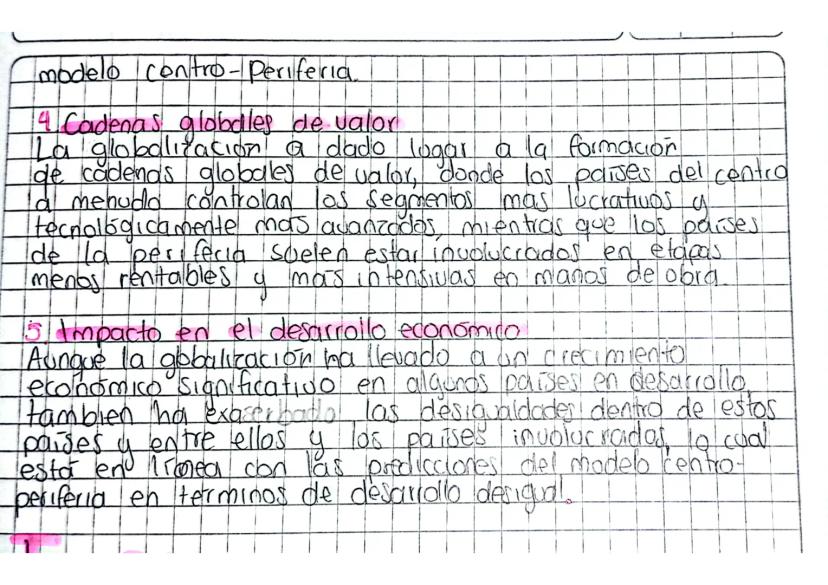 modelo centro-Periferia.
4. Cadenas globales de valor
La globalización a dado lugar a la formación
de cadenas globales de valor, donde los países del centro
a menudo controlan los segmentos mas lucrativos y
tecnológicamente mas avanzados, mientras que los países
de la periferia suelen estar involucrados en etapas
menos rentables y mas intensivas en manos de obra.
5. Impacto en el desarrollo económico
Aunque la globalización ha llevado a un crecimiento
económico significativo en algunos países en desarrollo,
tambien ha exacerbado las desigualdades dentro de estos
países y entre ellos y los países involucrados, lo cual
está en línea con las predicciones del modelo centro-
periferia en terminos de desarrollo desigual.
1